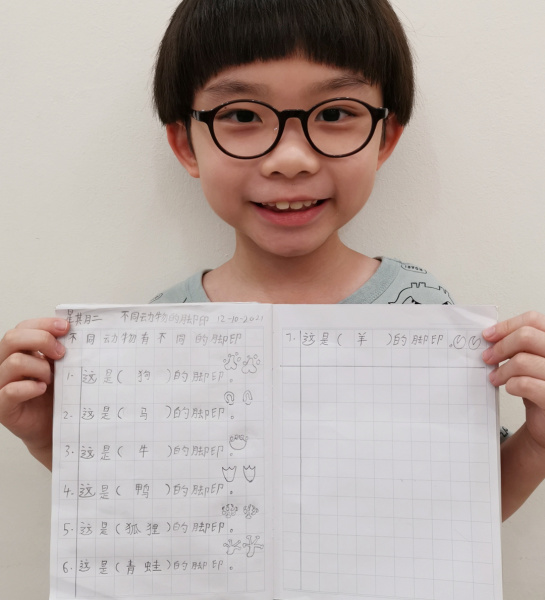 星其月二 不同动物的脚印 12-10-2021
不同动物有不同的脚印
1. 这是( 狗 )的脚印。
2. 这是( 马 )的脚印。
3. 这是( 牛 )的脚印。
4. 这是( 鸭 )的脚印。
5. 这是( 狐狸 )的脚印。
6. 这是( 青蛙 )的脚印。
7. 这是( 羊 )的脚印。